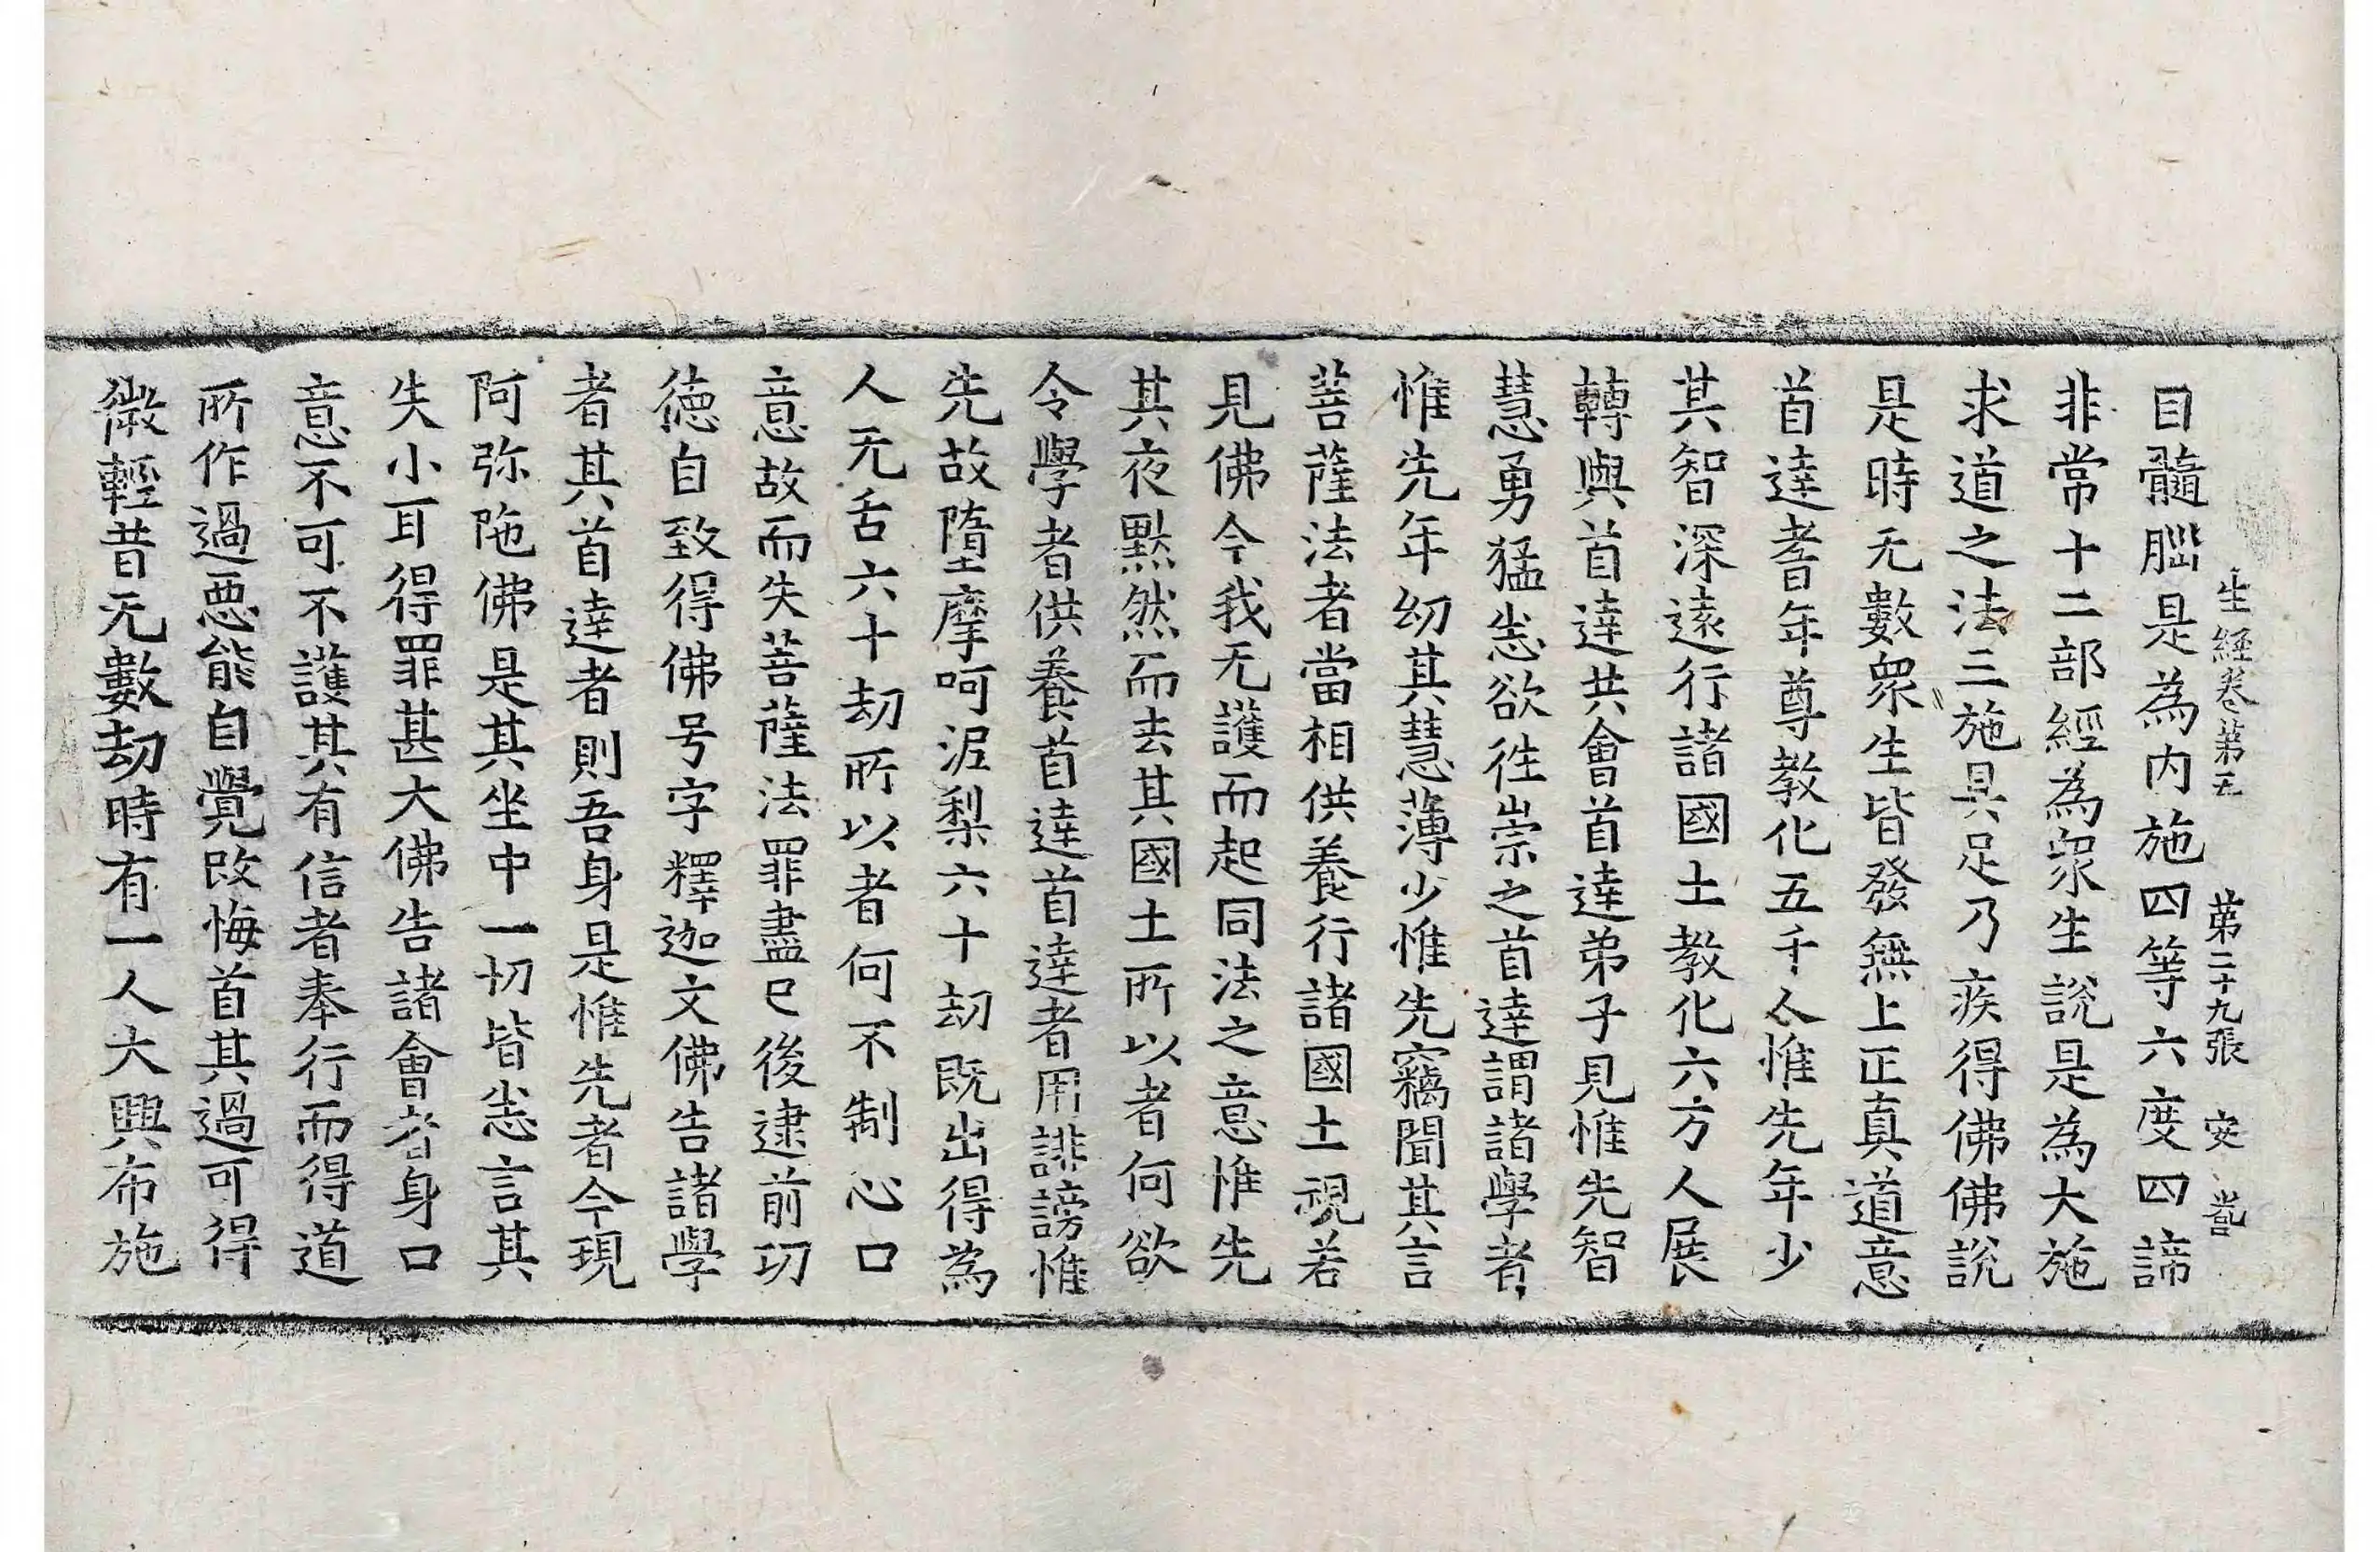 生經卷第五　第二十九張　安
目髓腦是為内施四等六度四諦
非常十二部經為衆生說是為大施
求道之法三施具足乃疾得佛佛說
是時无數衆生皆發無上正真道意
首達耆年尊教化五千人惟先年少
其智深遠行諸國土教化六方人展
轉與首達共會首達弟子見惟先智
慧勇猛悉欲往崇之首達謂諸學者
惟先年幼其慧薄少惟先竊聞其言
菩薩法者當相供養行諸國土視若
見佛今我无護而起同法之意惟先
其夜默然而去其國土所以者何欲
令學者供養首達首達者用誹謗惟
先故墮摩呵泥犁六十劫既出得為
人无舌六十劫所以者何不制心口
意故而失菩薩法罪盡已後逮前功
德自致得佛号字釋迦文佛告諸學
者其首達者則吾身是惟先者今現
阿弥陁佛是其坐中一切皆悉言其
失小耳得罪甚大佛告諸會者身口
意不可不護其有信者奉行而得道
所作過惡能自覺改悔首其過可得
微輕昔无數劫時有一人大興布施